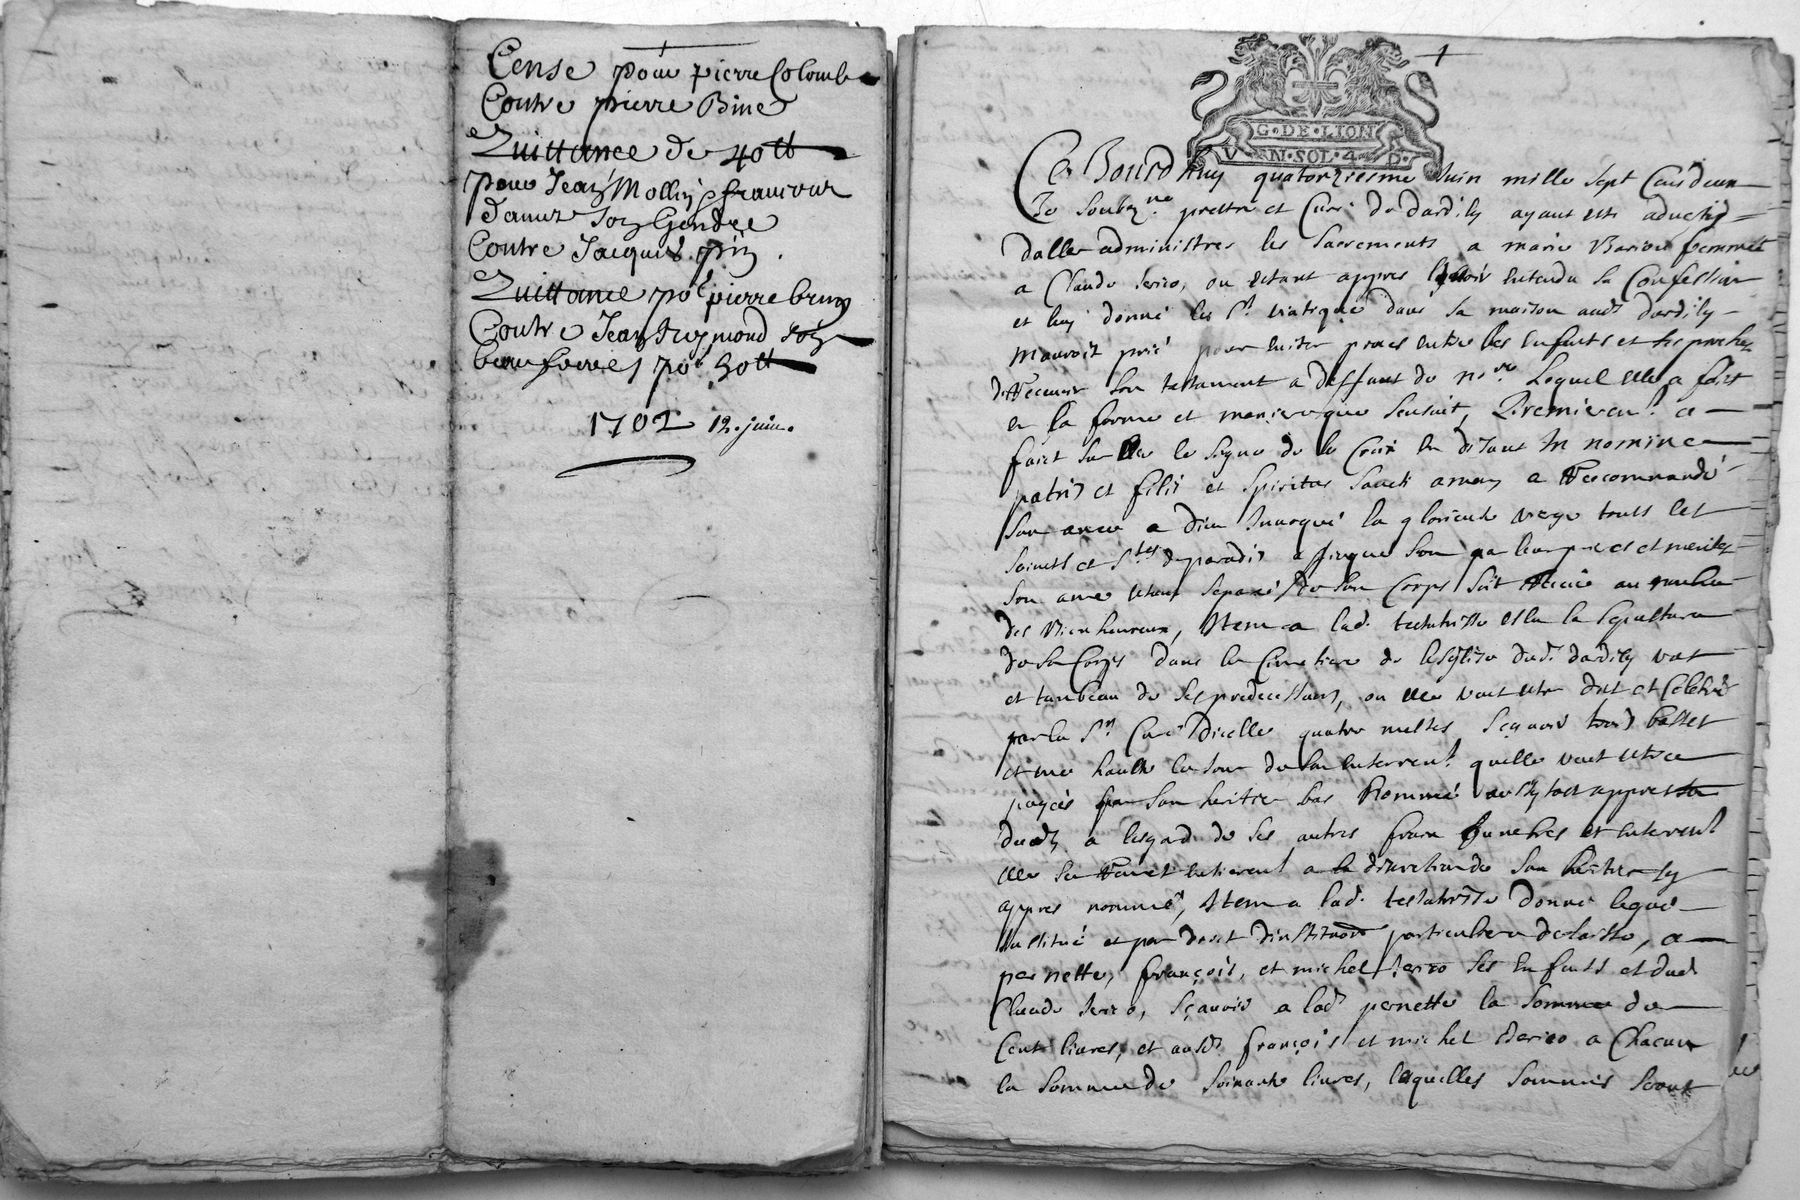 Cense pour pierre Colomb
Contre pierre Bine
Quittance de 40tt
pour Jean Mollin
son Gendre
Contre Jacques pin
Quittance po.r pierre brun
Contre Jean Reymond son
beau frere po.r 30tt
1702 12. juin.
G. DE. LION
VN. SOL. 4. D.
Ce Jourd huy quatorziesme Juin mille sept Cens deux
Je soubz.ne prestre et Curé de dardilly ayant esté adverty
daller administrer les sacrements a marie femme
a Claude Serizo, ou estant appres lavoir entendu sa Confession
et luy donné le S.t viatique dans sa maison aud. dardily
mauroit prié pour eviter proces entre ses enfants et ses proches
de Recevoir son testament a deffaut de no.re Lequel elle a faict
en la forme et maniere que sensuit, Premierem.t a
faict sur elle le signe de la Croix en disant In nomine
patris et filii et spiritus sancti amen a Recommandé
son ame a dieu Invoqué la glorieuse vierge touts les
saincts et S.tes du paradis a fin que par leurs prieres et merites
son ame estant separée de son Corps soit au
des Bien heureux, Item a lad. testatrisse esleu la sepulture
de son Corps dans le Cimetiere de lesglise dud. dardily
et tumbeau de ses predecesseurs, ou elle veut estre dict et Celebré
par le S.r Curé dicelle quatre messes, sçavoir trois basses
et une haulte le jour de son enterrem.t quelle veut estre
payees par son heritier bas Nommé appres
a lesgard de ses autres fraix funebres et enterrem.t
elle sen Remet entierem.t a la discretion de son heritier cy
appres nommé, Item a lad. testatrisse donné legué
Institué et par droit dinstitution particuliere delaisse, a
pernette, françois, et michel Serizo ses Enfants et dud.
Claude Serizo, sçavoir a lad. pernette la somme de
Cent livres, et ausd. françois et michel Serizo a Chacun
la somme de soixante livres, lesquelles sommes seront